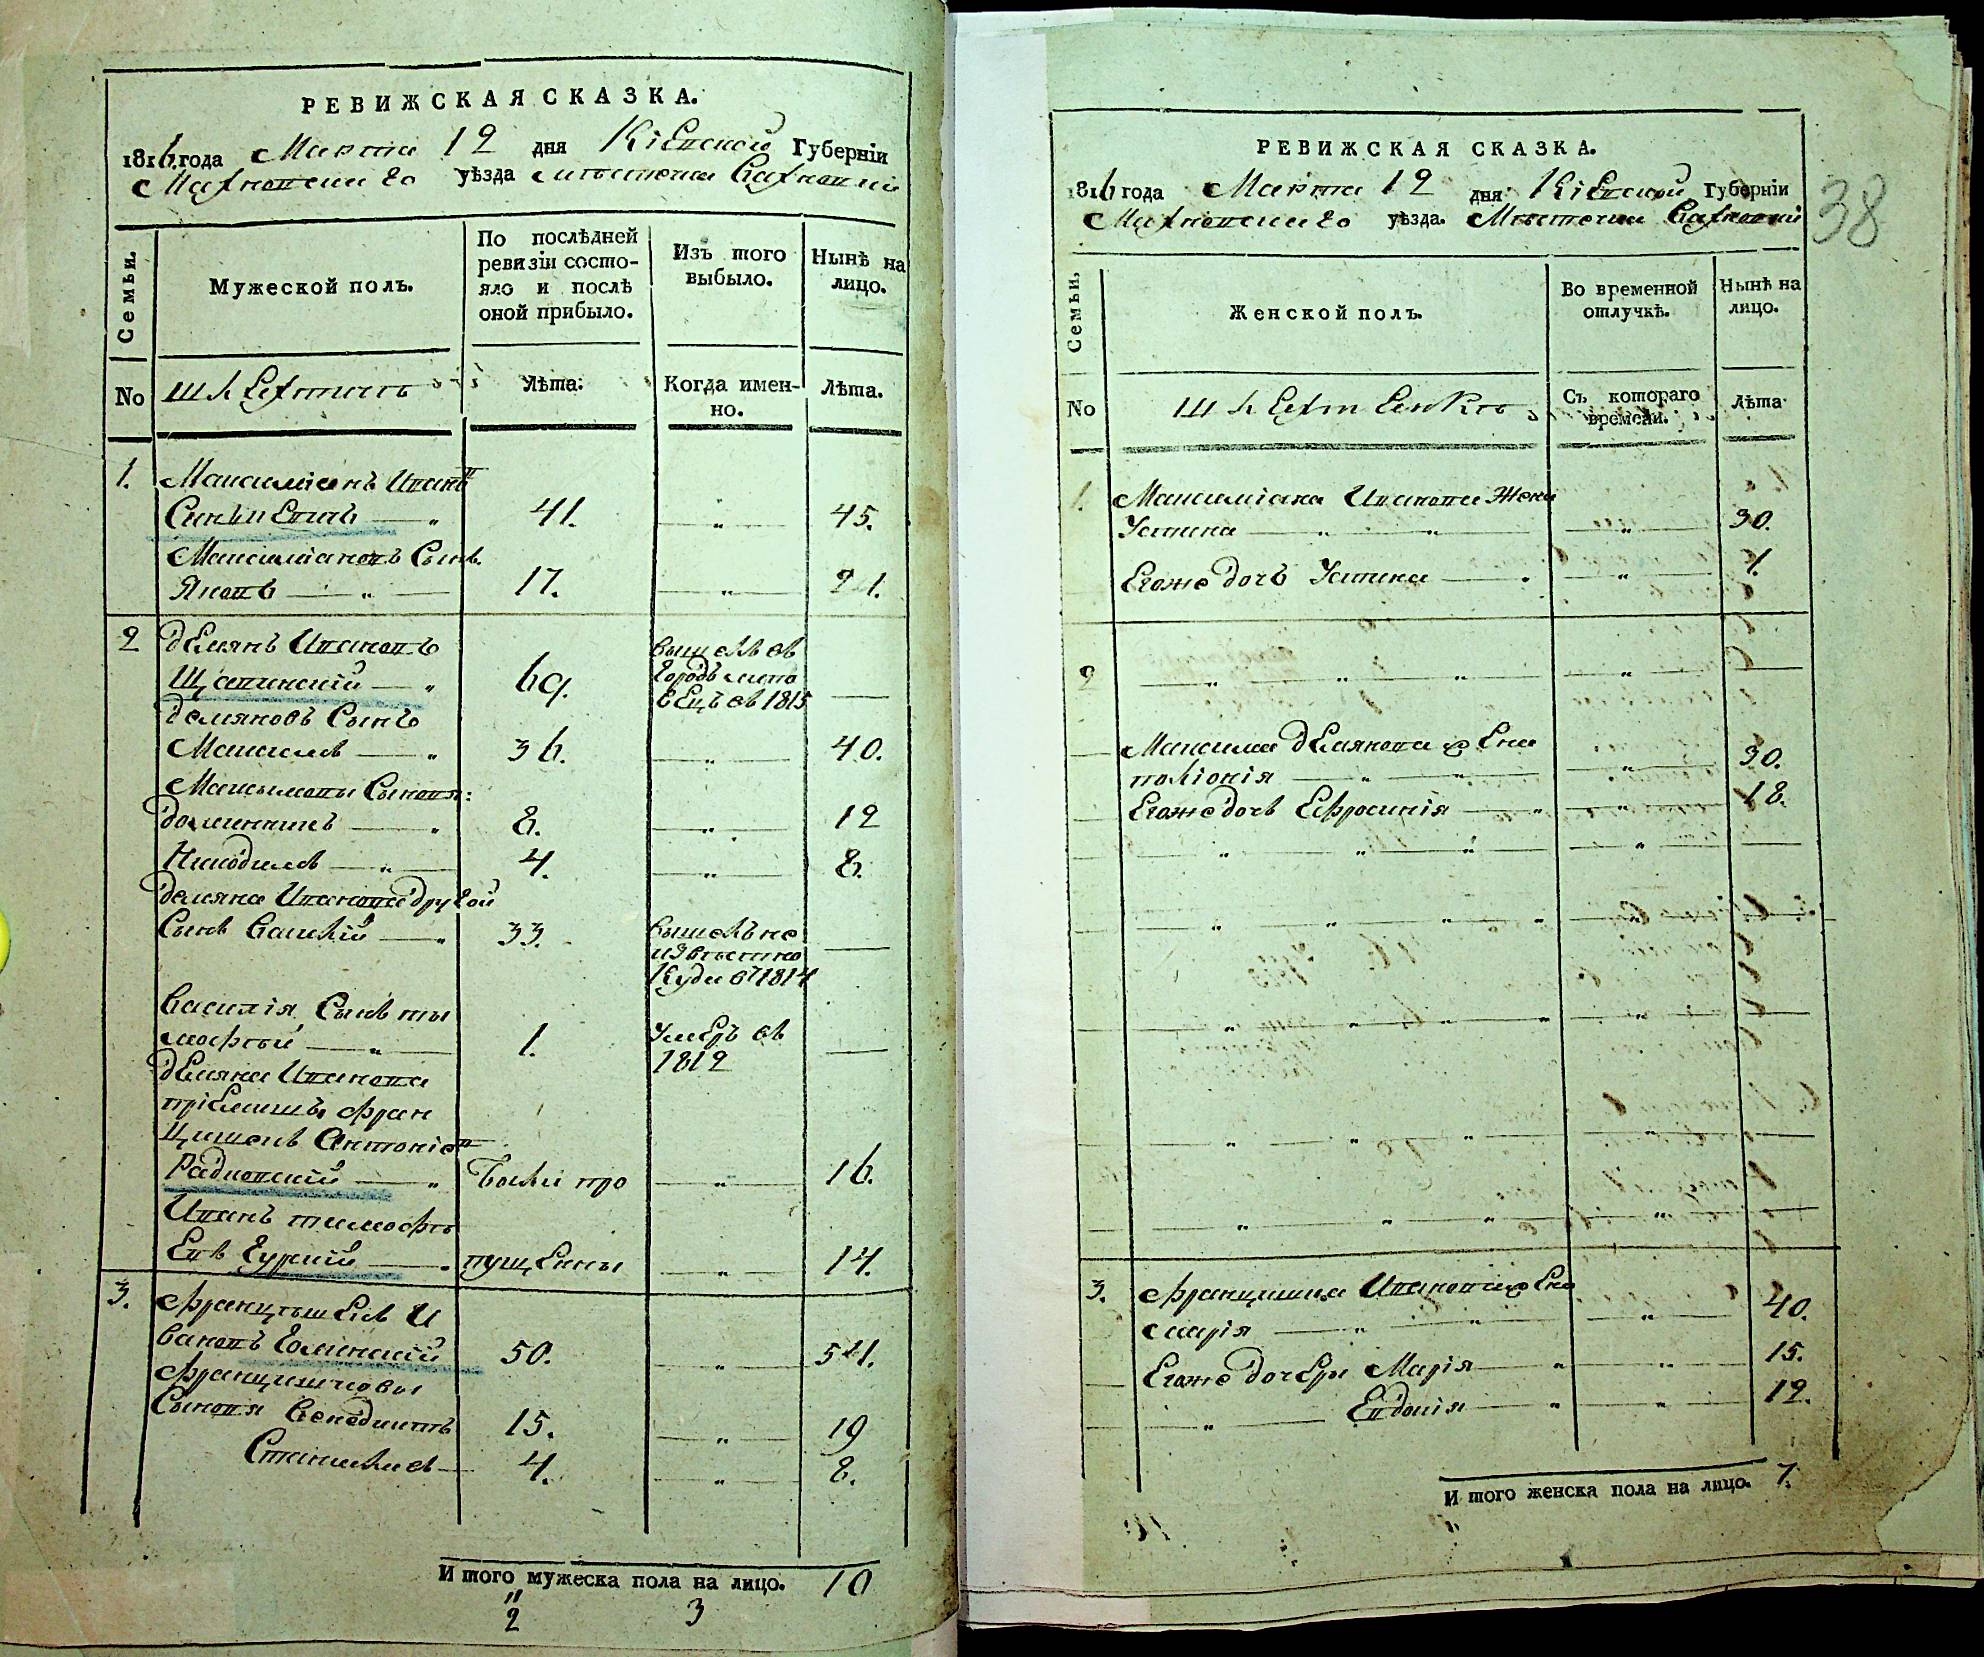 РЕВИЖСКАЯ СКАЗКА.
1816 года Марта 12 дня Кіевской Губерніи
Махновского уѣзда мѣстечка Вахновки
Семьи.
Мужеской полъ.
По послѣдней ревизіи состояло и послѣ оной прибыло.
Изъ того выбыло.
Нынѣ на лицо.
No
Шляхтичь
Лѣта.
Когда именно.
Лѣта.
1. Максиміянъ Ивановъ
41. „ 45.
Максиміановъ Сынъ
Яковъ „ 17. „ 21.
2 Демянъ Ивановъ
Щепинскій „ 69.
вышелъ въ
городъ
въ 1815
Демяновъ Сынъ
Максимъ „ 36. „ 40.
Максымовы Сыновя:
Доминикъ „ 8. „ 12
Никодимъ „ 4. „ 8.
Демяна Иванова другой
Сынъ Василій „ 33.
вышелъ не
извѣстно
Куда в 1814
Василія Сынъ ты
мофтей „ 1.
Умеръ въ
1812
Демяна Иванова
пріемишъ Фран
цишекъ Антоніев
Радковскій „ были про „ 16.
Иванъ тимофѣ
евъ Гурскій „ пущенны „ 14.
3. Францышекъ И
вановъ Голинскій 50. „ 54.
Францишковы
Сыновя Бенедиктъ 15. „ 19
Станиславъ 4. „ 8.
И того мужеска пола на лицо. 10
2 3
РЕВИЖСКАЯ СКАЗКА.
1816 года Марта 12 дня Кіевской Губерніи
Махновского уѣзда. Мѣстечка Вахновки
38
Семьи.
Женской полъ.
Во временной отлучкѣ.
Нынѣ на лицо.
No
Съ котораго времени.
Лѣта
1. Максиміана Иванова Жена
Устина „ „ „ 30.
Егоже дочь Устина „ „ 1.
2 „ „ „ „
Максима Демянова Жена
полюнія „ „ „ 30.
Егоже дочь Ефросинія „ „ 12.
„ „ „ „
„ „ „ „
„ „ „ „
„ „ „ „
„ „ „ „
3. Францишка Иванова Жена
марія „ „ „ 40.
Егоже дочери Марія „ „ 15.
„ Евдокія „ „ 12.
И того женска пола на лицо. 7.